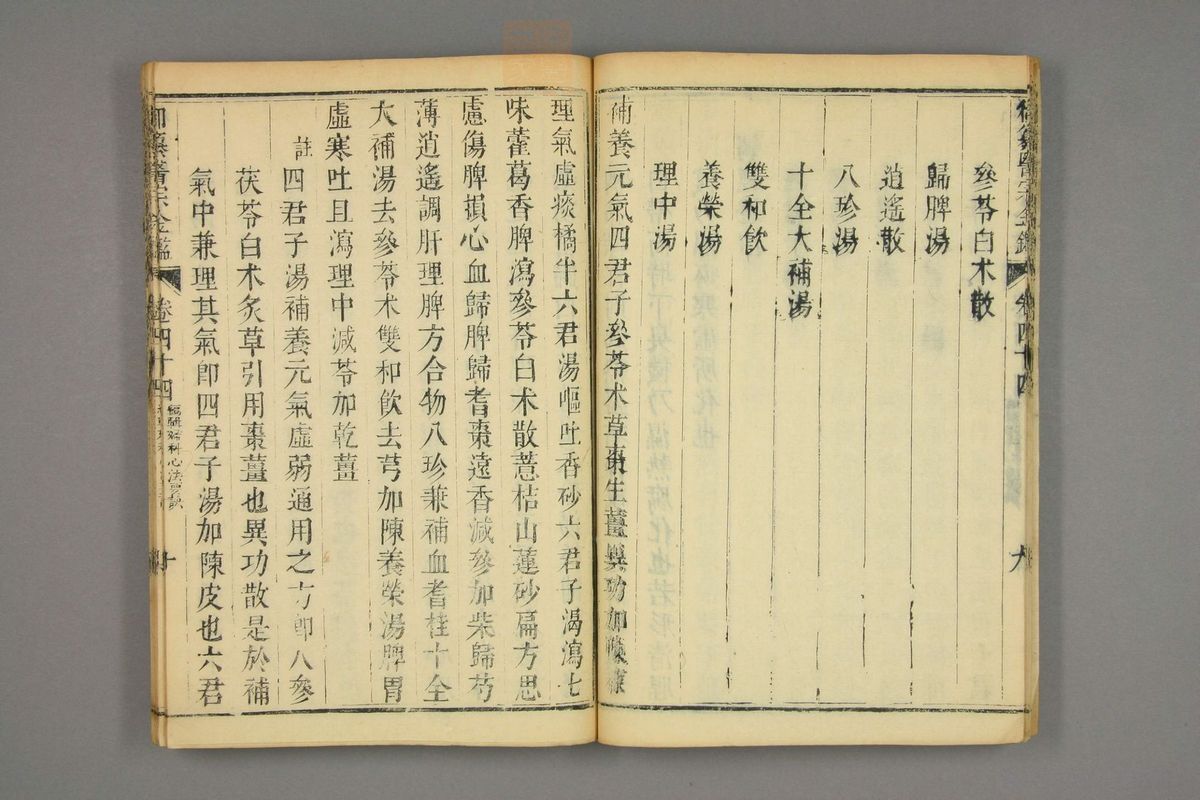 參苓白术散
歸脾湯
逍遙散
八珍湯
十全大補湯
雙和飲
養榮湯
理中湯
補養元氣四君子參苓术草棗生薑異功加陳
理氣虛痰橘半六君湯嘔吐香砂六君子渴瀉七
味藿葛香脾瀉參苓白术散薏桔山蓮砂扁方思
慮傷脾損心血歸脾歸耆棗遠香減參加柴歸芍
薄逍遙調肝理脾方合物八珍兼補血耆桂十全
大補湯去參苓术雙和飲去芎加陳養榮湯脾胃
虛寒吐且瀉理中減苓加乾薑
註四君子湯補養元氣虛弱通用之方即人參
茯苓白术炙草引用棗薑也異功散是於補
氣中兼理其氣即四君子湯加陳皮也六君
御纂醫宗金鑑
卷四十四
編輯婦科心法要訣
十